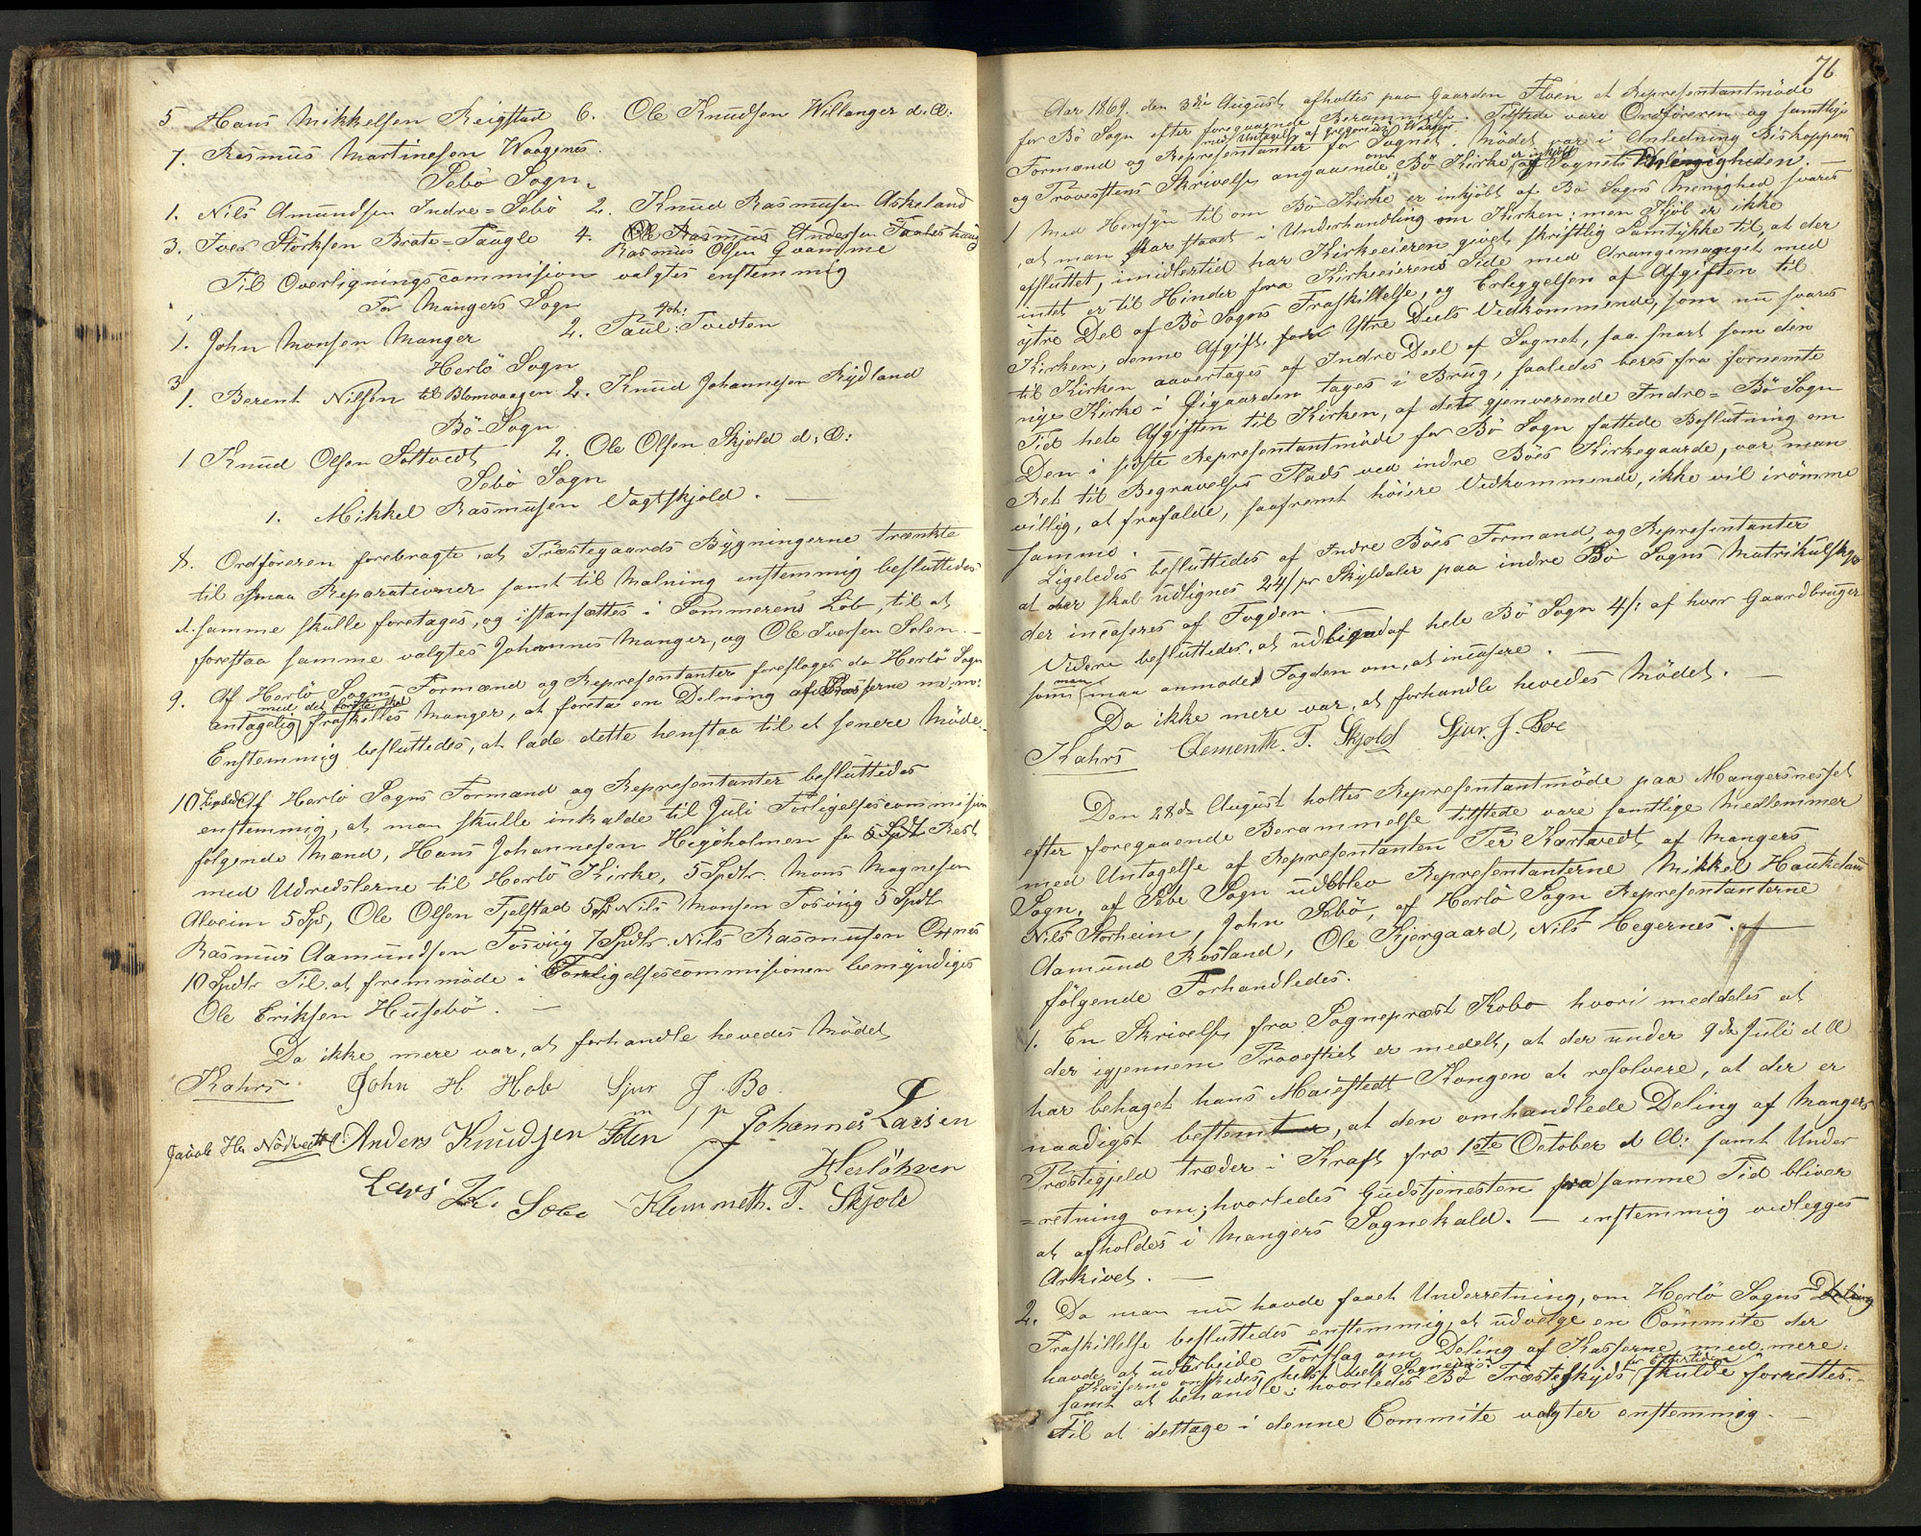 5 Hans Mikkelsen Reigstad 6. Ole Knudsen Willanger d. Æ.
7. Rasmus Martinesen Waagenes.
Sebö Sogn.
1. Nils Amundsen Indre=Sebö 2. Knud Rasmusen Askeland
3. Iver Störksen Brate=Taugle 4. Rasmus Olsen Qvamme
Til Overligningscommission valgtes enstemmig
For Mangers Sogn
1. John Monsen Manger 2. Paul Joh: Tvedten
Herlö Sogn
1. Berent Nilsen til Blomvaagen 2. Knud Johannesen Rydland
Bö-Sogn
1 Knud Olsen Soltvedt 2. Ole Olsen Skjold d: Æ:
Sebö Sogn
1. Mikkel Rasmusen Vagtskjold. —
8. Ordföreren forebragte at Præstegaards Bygningerne trænkte
til smaa Reparationer samt til Malning enstemmig besluttedes
at samme skulle foretages, og istansættes i Sommerens Löb, til at
forestaa samme valgtes Johannes Manger, og Ole Iversen Solem. —
9. Af Herlö Sogns Formænd og Representanter foresloges da Herlö Sogn
antagelig med det förste skal fraskilles Manger, at foreta en Delning af Kasserne m: m:
Enstemmig besluttedes, at lade dette henstaa til et senere Möde.
10 Ligeled: Af Herlö Sogns Formænd og Representanter besluttedes
enstemmig, at man skulle inkalde til Juli Forligelsescommision
fölgende Mænd, Hans Johannesen Hegöholmen for Rest
med Udredslerne til Herlö Kirke, 5 Spdlr Mons Magnesen
Alveim 5 Spd, Ole Olsen Fjelstad 5 Spd Nils Monsen Tosviig 5 Spdlr
Rasmus Aamundsen Tosviig 7 Spdlr. Nils Rasmusen Oxnes
10 Spdlr Til at fremmöde i Forligelsescommisionen bemyndiges
Ole Eriksen Husebö. —
Da ikke mere var, at forhandle hevedes Mödet
Kahrs. John H Hole Sjur J. Bo
Jacob Hs Nödvedt Anders Knudsen Johannes Larsen
Herlöhven
Lars K. Sebo Klemmeth. T. Skjold
76
Aar 1869. den 3die August afholtes paa Gaarden Floen et Representantmöde
for Bö Sogn efter foregaaende Berammelse. Tilstede vare Ordföreren og samtlige
Formænd og Representanter med Untagelse af Gregorius Waage. for Sognet. Mödet var i Anledning Biskoppens
og Provestens Skrivelse angaaende om Bö Kirke er inkjöbt af Sognets Menigheden. —
1 Med Hensyn til om Bö Kirke er inkjöbt af Bö Sogns Menighed svares
, at man har staaet i Underhandling om Kirken; men Kjöb er ikke
afsluttet, imidlertid har Kirkeeieren givet skriftlig Samtykke til, at der
intet er til Hinder fra Kirkeeierens Side med Arangemanget med
ytre Del af Bö Sogns Fraskillelse, og Erleggelsen af Afgiften til
Kirken, denne Afgift for Ytre Deels Vedkommende, som nu svares
til Kirken aavertages af Indre Deel af Sognet, saa snart som den
nye Kirke i Öigaarden tages i Brug, saaledes beres fra fornemte
Tid hele Afgiften til Kirken, af det gjenverende Indre=Bö Sogn
Den i siste Representantmöde for Bö Sogn fattede Beslutning om
Ret til Begravelses Plads ved indre Böes Kirkegaarde, var man
villig, at frafalde, saafremt höiere Vedkommende, ikke vil irömme
samme.
Ligeledes besluttedes af Indre Böes Formænd, og Representanter
at der skal udlignes 24/ pr Skyldaler paa indre Bö Sogns Matrikulskyld
der incaseres af Fogden —
Videre besluttedes, at udligned af hele Bö Sogn 4/: af hver Gaardbruger
som man maa anmode Fogden om, at incasere. —
Da ikke mere var, at forhandle hevedes Mödet. —
Kahrs Clementh. T. Skjold Sjur. J. Boe
Den 28de August holtes Representantmöde paa Mangersnesset
efter foregaaende Berammelse tilstede vare samtlige Medlemmer
med Untagelse af Representanten Per Kartvedt af Mangers
Sogn, af Sebö Sogn udeblev Representanterne Mikkel Haukeland
Nils Storheim, John Sebö, af Herlö Sogn Representanterne
Aamund Rosland, Ole Kjergaard, Nils Hegernes.
fölgende Forhandledes.
1. En Skrivelse fra Sognepræst Kobro hvori meddeles at
der igjennem Proveftiet er medelt, at der under 9de Juli d A
har behaget hans Maiestedt Kongen at resolvere, at der er
naadigst bestemt, at den omhandlede Deling af Mangers
Præstegjeld træder i Kraft fra 1ste October d A: samt Under
=retning om, hvorledes Gudstjenesten fra samme Tid bliver
at afholdes i Mangers Sognekald. — enstemmig vedlegges
Arkivet. —
2. Da man nu havde faaet Underretning, om Herlö Sogns
Fraskillelse besluttedes enstemmig, at udvelge en Committe der
havde at udarbeide Forslag om Deling af Kasserne med mere.
Kasserne onskedes helst delt Sognevis
samt at behandle: hvorledes Bö Præsteskyds for Eftertiden skulde forrettes. —
Til at deltage i denne Committe valgtes enstemmig. —